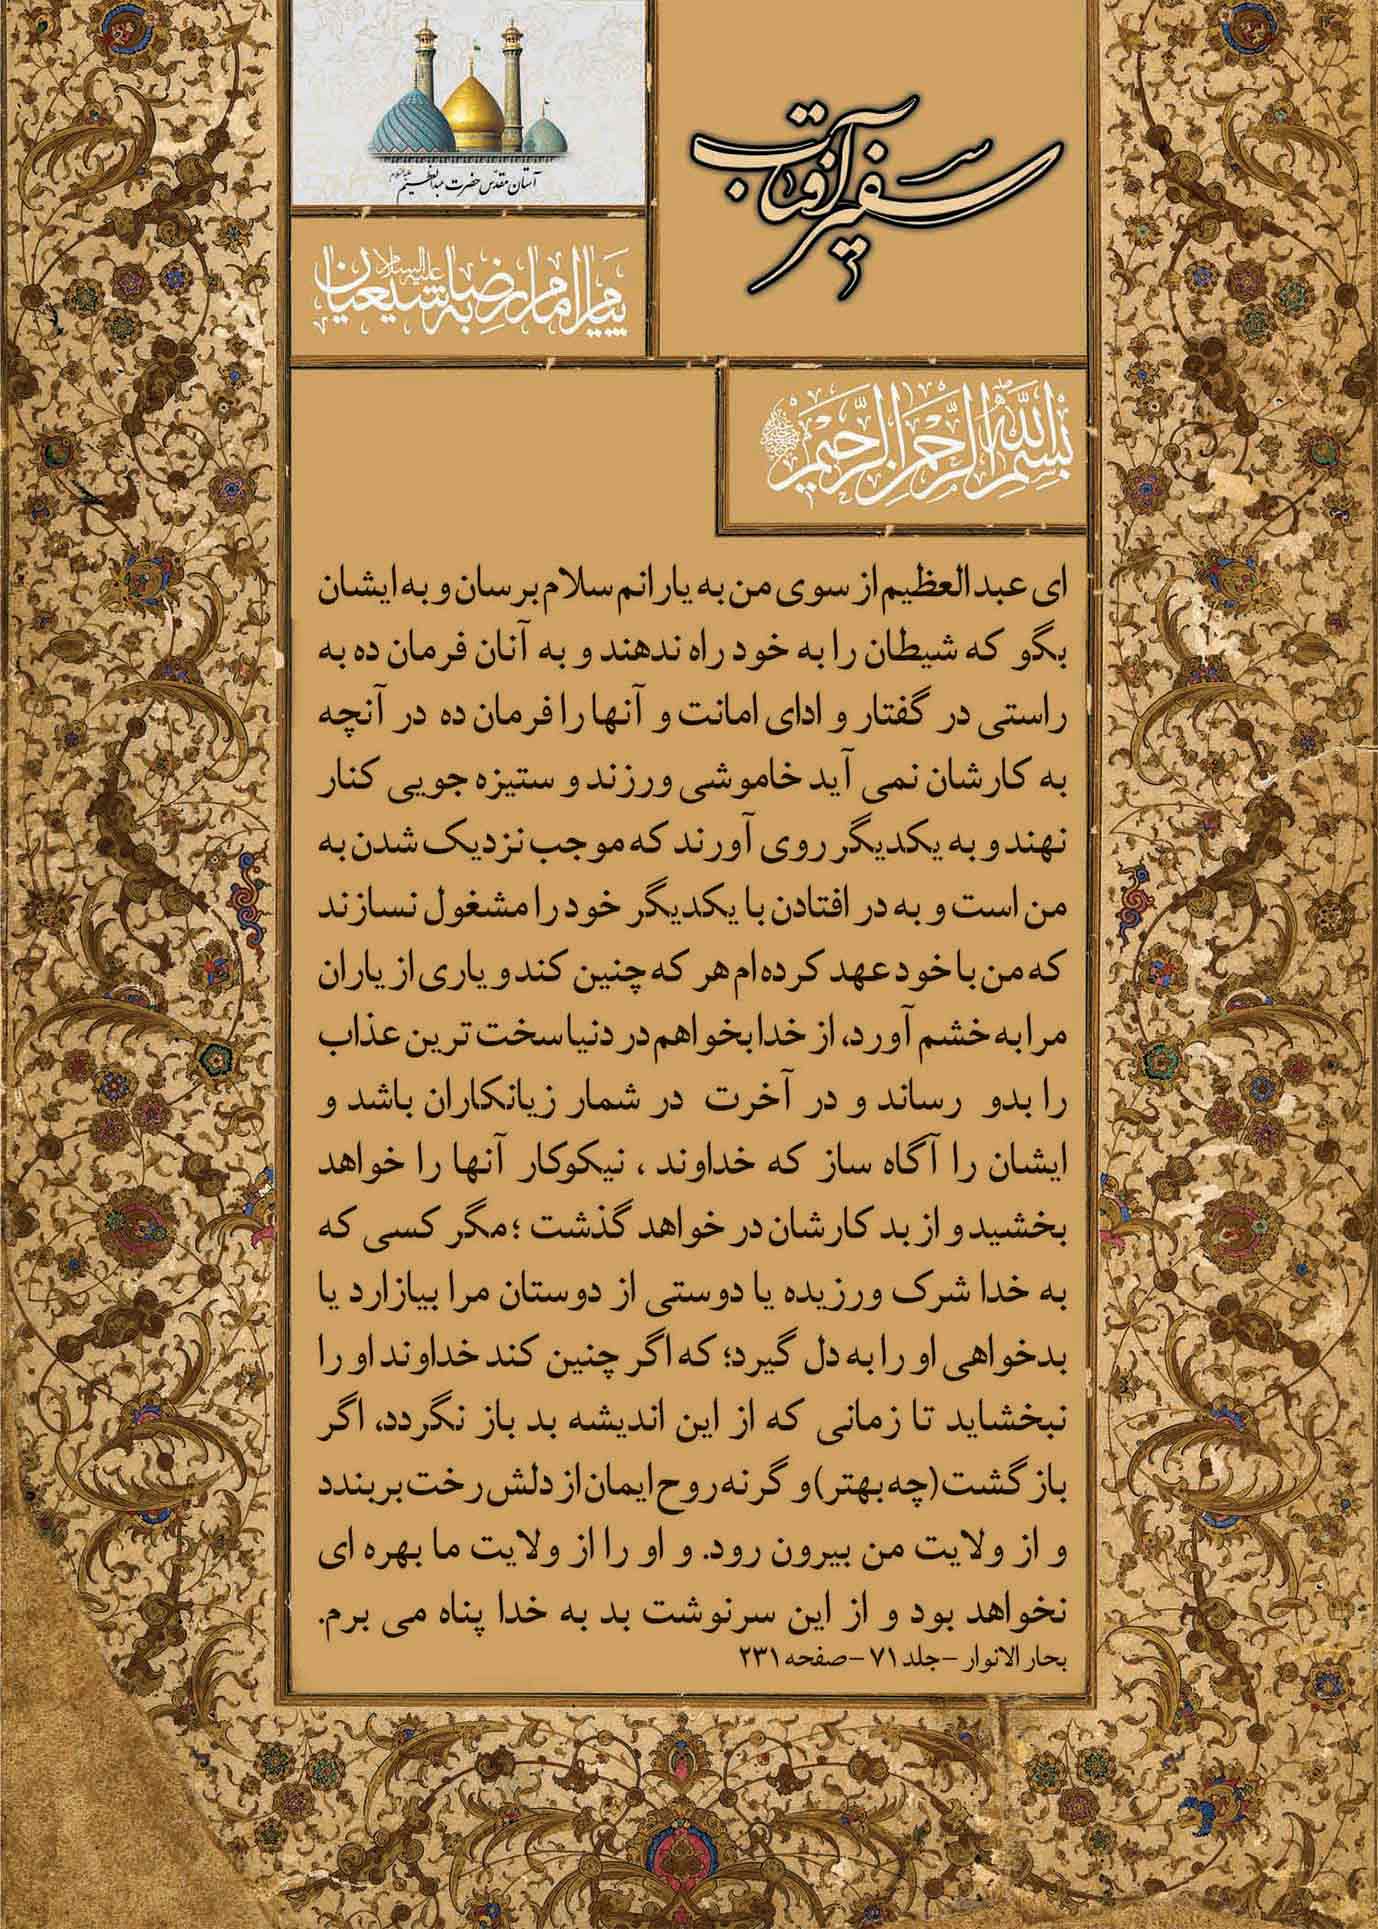 سفیر آفتاب
آستان مقدس حضرت عبدالعظیم علیه‌السلام
پیام امام رضا علیه السلام به شیعیان
بسم الله الرحمن الرحیم
ای عبدالعظیم از سوی من به یارانم سلام برسان و به ایشان
بگو که شیطان را به خود راه ندهند و به آنان فرمان ده به
راستی در گفتار و ادای امانت و آنها را فرمان ده در آنچه
به کارشان نمی آید خاموشی ورزند و ستیزه جویی کنار
نهند و به یکدیگر روی آورند که موجب نزدیک شدن به
من است و به در افتادن با یکدیگر خود را مشغول نسازند
که من با خود عهد کرده ام هر که چنین کند و یاری از یاران
مرا به خشم آورد، از خدا بخواهم در دنیا سخت ترین عذاب
را بدو رساند و در آخرت در شمار زیانکاران باشد و
ایشان را آگاه ساز که خداوند ، نیکوکار آنها را خواهد
بخشید و از بد کارشان در خواهد گذشت ؛ مگر کسی که
به خدا شرک ورزیده یا دوستی از دوستان مرا بیازارد یا
بدخواهی او را به دل گیرد؛ که اگر چنین کند خداوند او را
نبخشاید تا زمانی که از این اندیشه بد باز نگردد، اگر
بازگشت (چه بهتر) و گرنه روح ایمان از دلش رخت بربندد
و از ولایت من بیرون رود. و او را از ولایت ما بهره ای
نخواهد بود و از این سرنوشت بد به خدا پناه می برم.
بحار الانوار - جلد ۷۱ - صفحه ۲۳۱